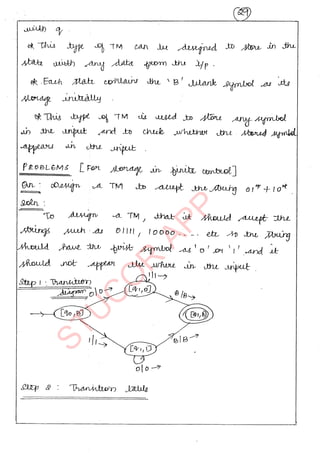 29
with q.
* This type of TM can be designed to store in the
state with any data from the i/p.
* Each state contains the 'B' blank symbol as its
storage initially.
* This type of TM is used to store any symbol
in the input and to check whether the stored symbol
appears in the input.
PROBLEMS [For storage in finite control]
Qn : Design a TM to accept the string 01* + 10*.
Soln :
To design a TM, that it should accept the
strings such as 01111, 10000..... etc so the string
should have the first symbol as '0' or '1' and it
should not appear else where in the input
Step 1 : Transition
diagram
1/1→
0/0→
[q1,0]
B/B→
[q0,B]
[q1,B]
1/1→
[q1,1]
B/B→
0/0→
Step 2 : Transition table
STUCOR APP